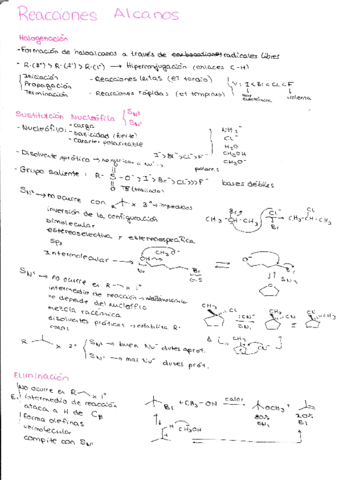 Reacciones Alcanos
Halogenación
- Formación de haloalcanos a través de radicales libres
- R·(3º) > R·(2º) > R·(1º) → Hiperconjugación (enlaces C-H)
Iniciación - Reacciones lentas (et tardío)
Propagación
Terminación - Reacciones rápidas (et temprano)
V: I < Br < Cl < F
violenta
Sustitución Nucleófila SN2
SN1
- Nucleófilo: - carga
- basicidad (fuerte)
- carácter polarizable
NH2-
Cl-
H2O
CH3OH
CH3O-
- Disolvente aprótico → no
I- > Br- > Cl- > F-
- Grupo saliente: R-S-O- > I- > Br- > Cl- >>> F- bases débiles
SN2 → no ocurre con x 3º → impedidos
inversión de la configuración
bimolecular
estereoselectiva y estereoespecífica
sp3
Intermolecular
CH3-CH-CH3
Br
Cl-
CH3-CH-CH3
Cl
SN1 → no ocurre en R x 1º
intermedio de reacción
no depende del nucleófilo
mezcla racémica
disolventes próticos → estabiliza R+
SN1
CH3
Cl
SN1
CH3
CH3
R x 2º SN2 → buen Nu- dvtes aprót.
SN1 → mal Nu- dvtes prót.
Eliminación
No ocurre en R x 1º
E1 intermedio de reacción
ataca a H de Cβ
forma olefinas
unimolecular
compite con SN1
Br + CH3-OH calor OCH3 +
80% SN1
20% E1
CH3OH